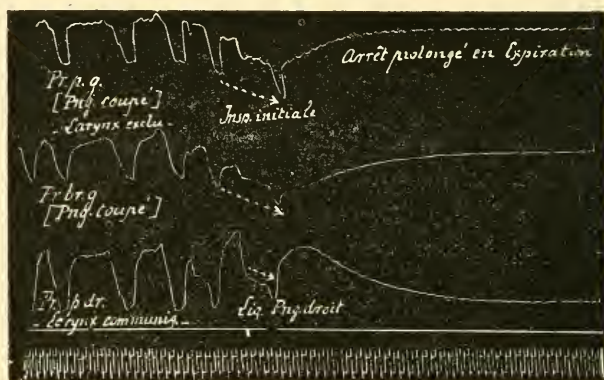 Arrêt prolongé en Expiration
Pr. p. g.
[Png. coupé]
- Larynx exclu -
Insp. initiale
Pr br. g
[Png. coupé]
Pr. b. dr.
- Larynx communiq -
Lig. Png. droit